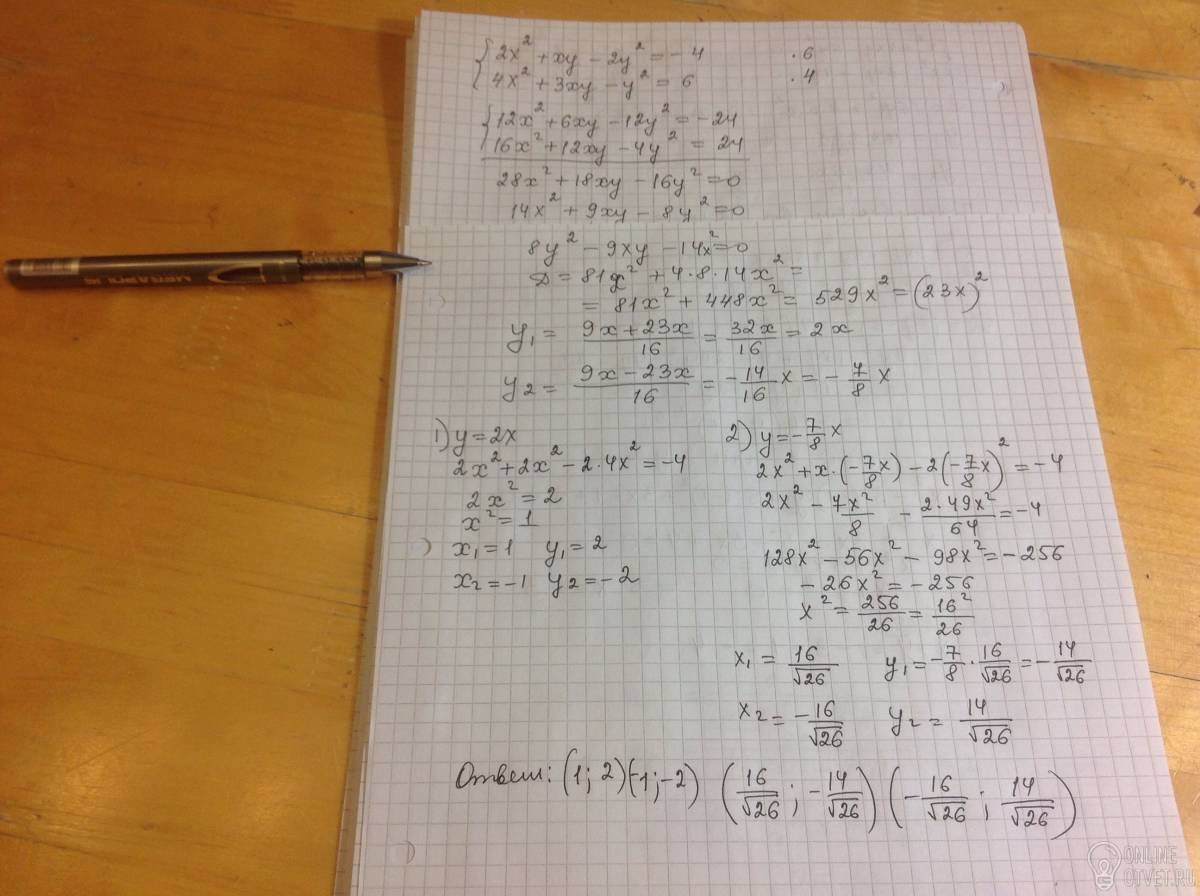 {2x² + xy - 2y² = -4 ·6
4x² + 3xy - y² = 6 ·4
{12x² + 6xy - 12y² = -24
16x² + 12xy - 4y² = 24
28x² + 18xy - 16y² = 0
14x² + 9xy - 8y² = 0
8y² - 9xy - 14x² = 0
D = 81x² + 4·8·14x² =
= 81x² + 448x² = 529x² = (23x)²
y₁ = (9x + 23x)/16 = 32x/16 = 2x
y₂ = (9x - 23x)/16 = -14/16 x = -7/8 x
1) y = 2x
2x² + 2x² - 2·4x² = -4
2x² = 2
x² = 1
x₁ = 1 y₁ = 2
x₂ = -1 y₂ = -2
2) y = -7/8 x
2x² + x·(-7/8 x) - 2(-7/8 x)² = -4
2x² - 7x²/8 - 2·49x²/64 = -4
128x² - 56x² - 98x² = -256
-26x² = -256
x² = 256/26 = 16²/26
x₁ = 16/√26 y₁ = -7/8 · 16/√26 = -14/√26
x₂ = -16/√26 y₂ = 14/√26
Ответ: (1; 2)(-1; -2) (16/√26 ; -14/√26) (-16/√26 ; 14/√26)
ONLINE
OTVET.RU